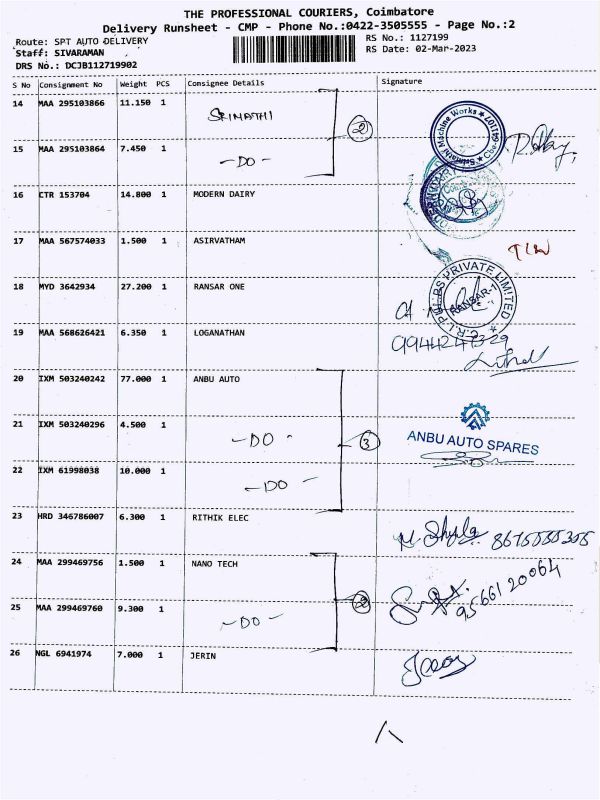 THE PROFESSIONAL COURIERS, Coimbatore
Delivery Runsheet - CMP - Phone No.:0422-3505555 - Page No.:2
Route: SPT AUTO DELIVERY
RS No.: 1127199
Staff: SIVARAMAN
RS Date: 02-Mar-2023
DRS No.: DCJB112719902
S No Consignment No Weight PCS Consignee Details Signature
14 MAA 295103866 11.150 1 SRINATHI
2
Srinathi Machine Works
15 MAA 295103864 7.450 1 -DO-
16 CTR 153704 14.800 1 MODERN DAIRY
17 MAA 567574033 1.500 1 ASIRVATHAM
18 MYD 3642934 27.200 1 RANSAR ONE
C.R.I. PUMPS PRIVATE LIMITED
RANSAR-1
19 MAA 568626421 6.350 1 LOGANATHAN
9944247329
20 IXM 503240242 77.000 1 ANBU AUTO
21 IXM 503240296 4.500 1 -DO-
3
ANBU AUTO SPARES
22 IXM 61998038 10.000 1 -DO-
23 HRD 346786007 6.300 1 RITHIK ELEC
24 MAA 299469756 1.500 1 NANO TECH
9566120064
2
25 MAA 299469760 9.300 1 -DO-
26 NGL 6941974 7.000 1 JERIN